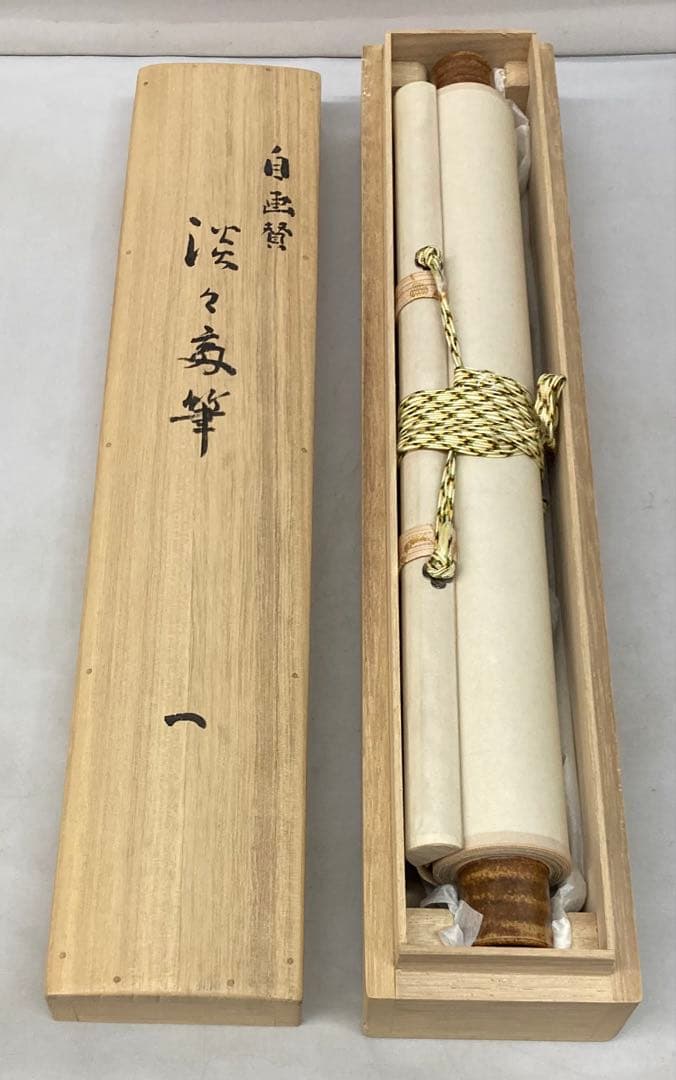 自画賛
淡々斎筆
一